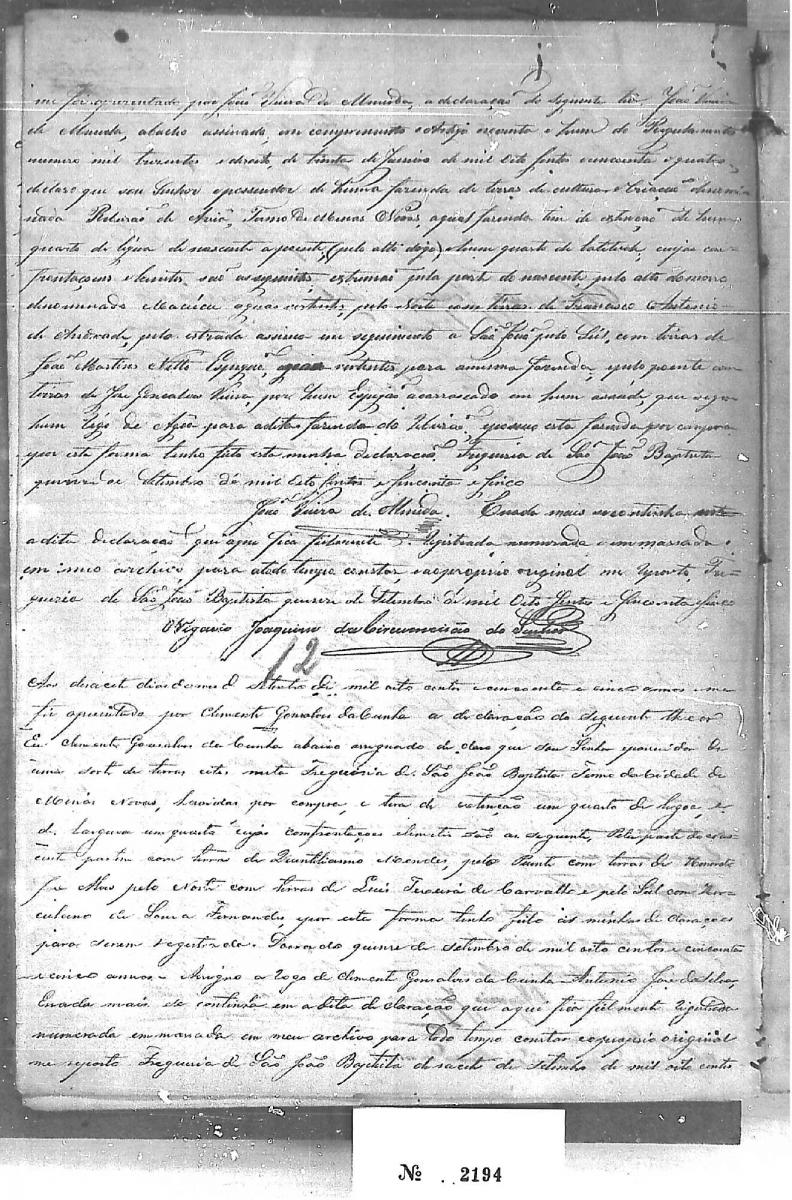 me foi apresentado por João Vieira de Almeida, a declaração do seguinte thiôr João Vieira
de Almeida, abacho assinado, em comprimento o Artigo noventa e hum do Regulamento
numero mil trezentos e dezoito, de trinta de Janeiro de mil oito sentos e cincoenta e quatro,
declaro que sou Senhor e possuidor de huma fazenda de terras de culturas e criação denomi
nada Ribeirão de Areia, Termo de Minas Novas, a qual fazenda tem de extenção de hum
quarto de légua de nascente a poente, (pelo alto digo) e hum quarto de latitude, cujas con
frontaçoens e lemites são as seguintes, extremar pela parte do nascente, pelo alto do morro
denominado Macúca aguas vertentes, pelo Norte com terras de Francisco Antonio
de Andrade pelo estrada assima em seguimento a São João pelo Sul, com terras de
João Martins Netto Espigão, agoas vertentes para a mesma fazenda, e pelo poente com
terras de José Gonsalves Vieira, por hum Espigão acarrascado em hum assude, que
hum de Agoa para a dita fazenda do Ribeirão, e possuo esta fazenda por compra
e por esta forma tenho feito esta minha declaração. Freguesia de São João Baptista
quinze de Setembro de mil oito sentos e sincoenta e sinco
João Vieira de Almeida. E nada mais se continha
a dita declaração que aqui fica fielmente Registrada numerada e emmassada
em meu archivo para a todo tempo constar, e ao proprio original me reporto, Fre-
guezia de São João Baptista quinze de Setembro de mil Oito Sentos e Sincoenta e Sinco
O Vigario Joaquim da Circumcisão do Senhor
12
Aos desacete dias do mes de Setembro de mil oito centos e cincoenta e cinco annos me
foi aprezentado por Clemente Gonsalves da Cunha a declaração do seguinte theor
Eu Clemente Gonsalves da Cunha abaixo assignado declaro que sou Senhor e possuidor de
uma sorte de terras citas nesta Freguezia de São João Baptista Termo da Cidade de
Minas Novas, havidas por compra, e tera de extenção um quarto de legoa, e
de largura um quarto cujas comfrontações e limites são as seguintes, Pela parte do nas
cente partem com terras de Quintilianno Mendes, pelo Puente com terras de
pelo Norte com terras de Luis Teixeira de Carvalho e pelo Sul com Her
culano de Souza Fernandes, e por esta forma tenho feito as minhas declarações
para serem registradas. quinze de setembro de mil oito centos e cincoenta
e cinco annos = Assigno a rogo de Clemente Gonsalves da Cunha = Antonio José da Silva,
E nada mais se continha em a dita declaração que aqui fica fielmente rigistrada
numerada emmasada em meu archivo para todo tempo constar e ao proprio original
me reporto Freguezia de São João Baptista desacete de Setembro de mil oito centos
Nº 2194